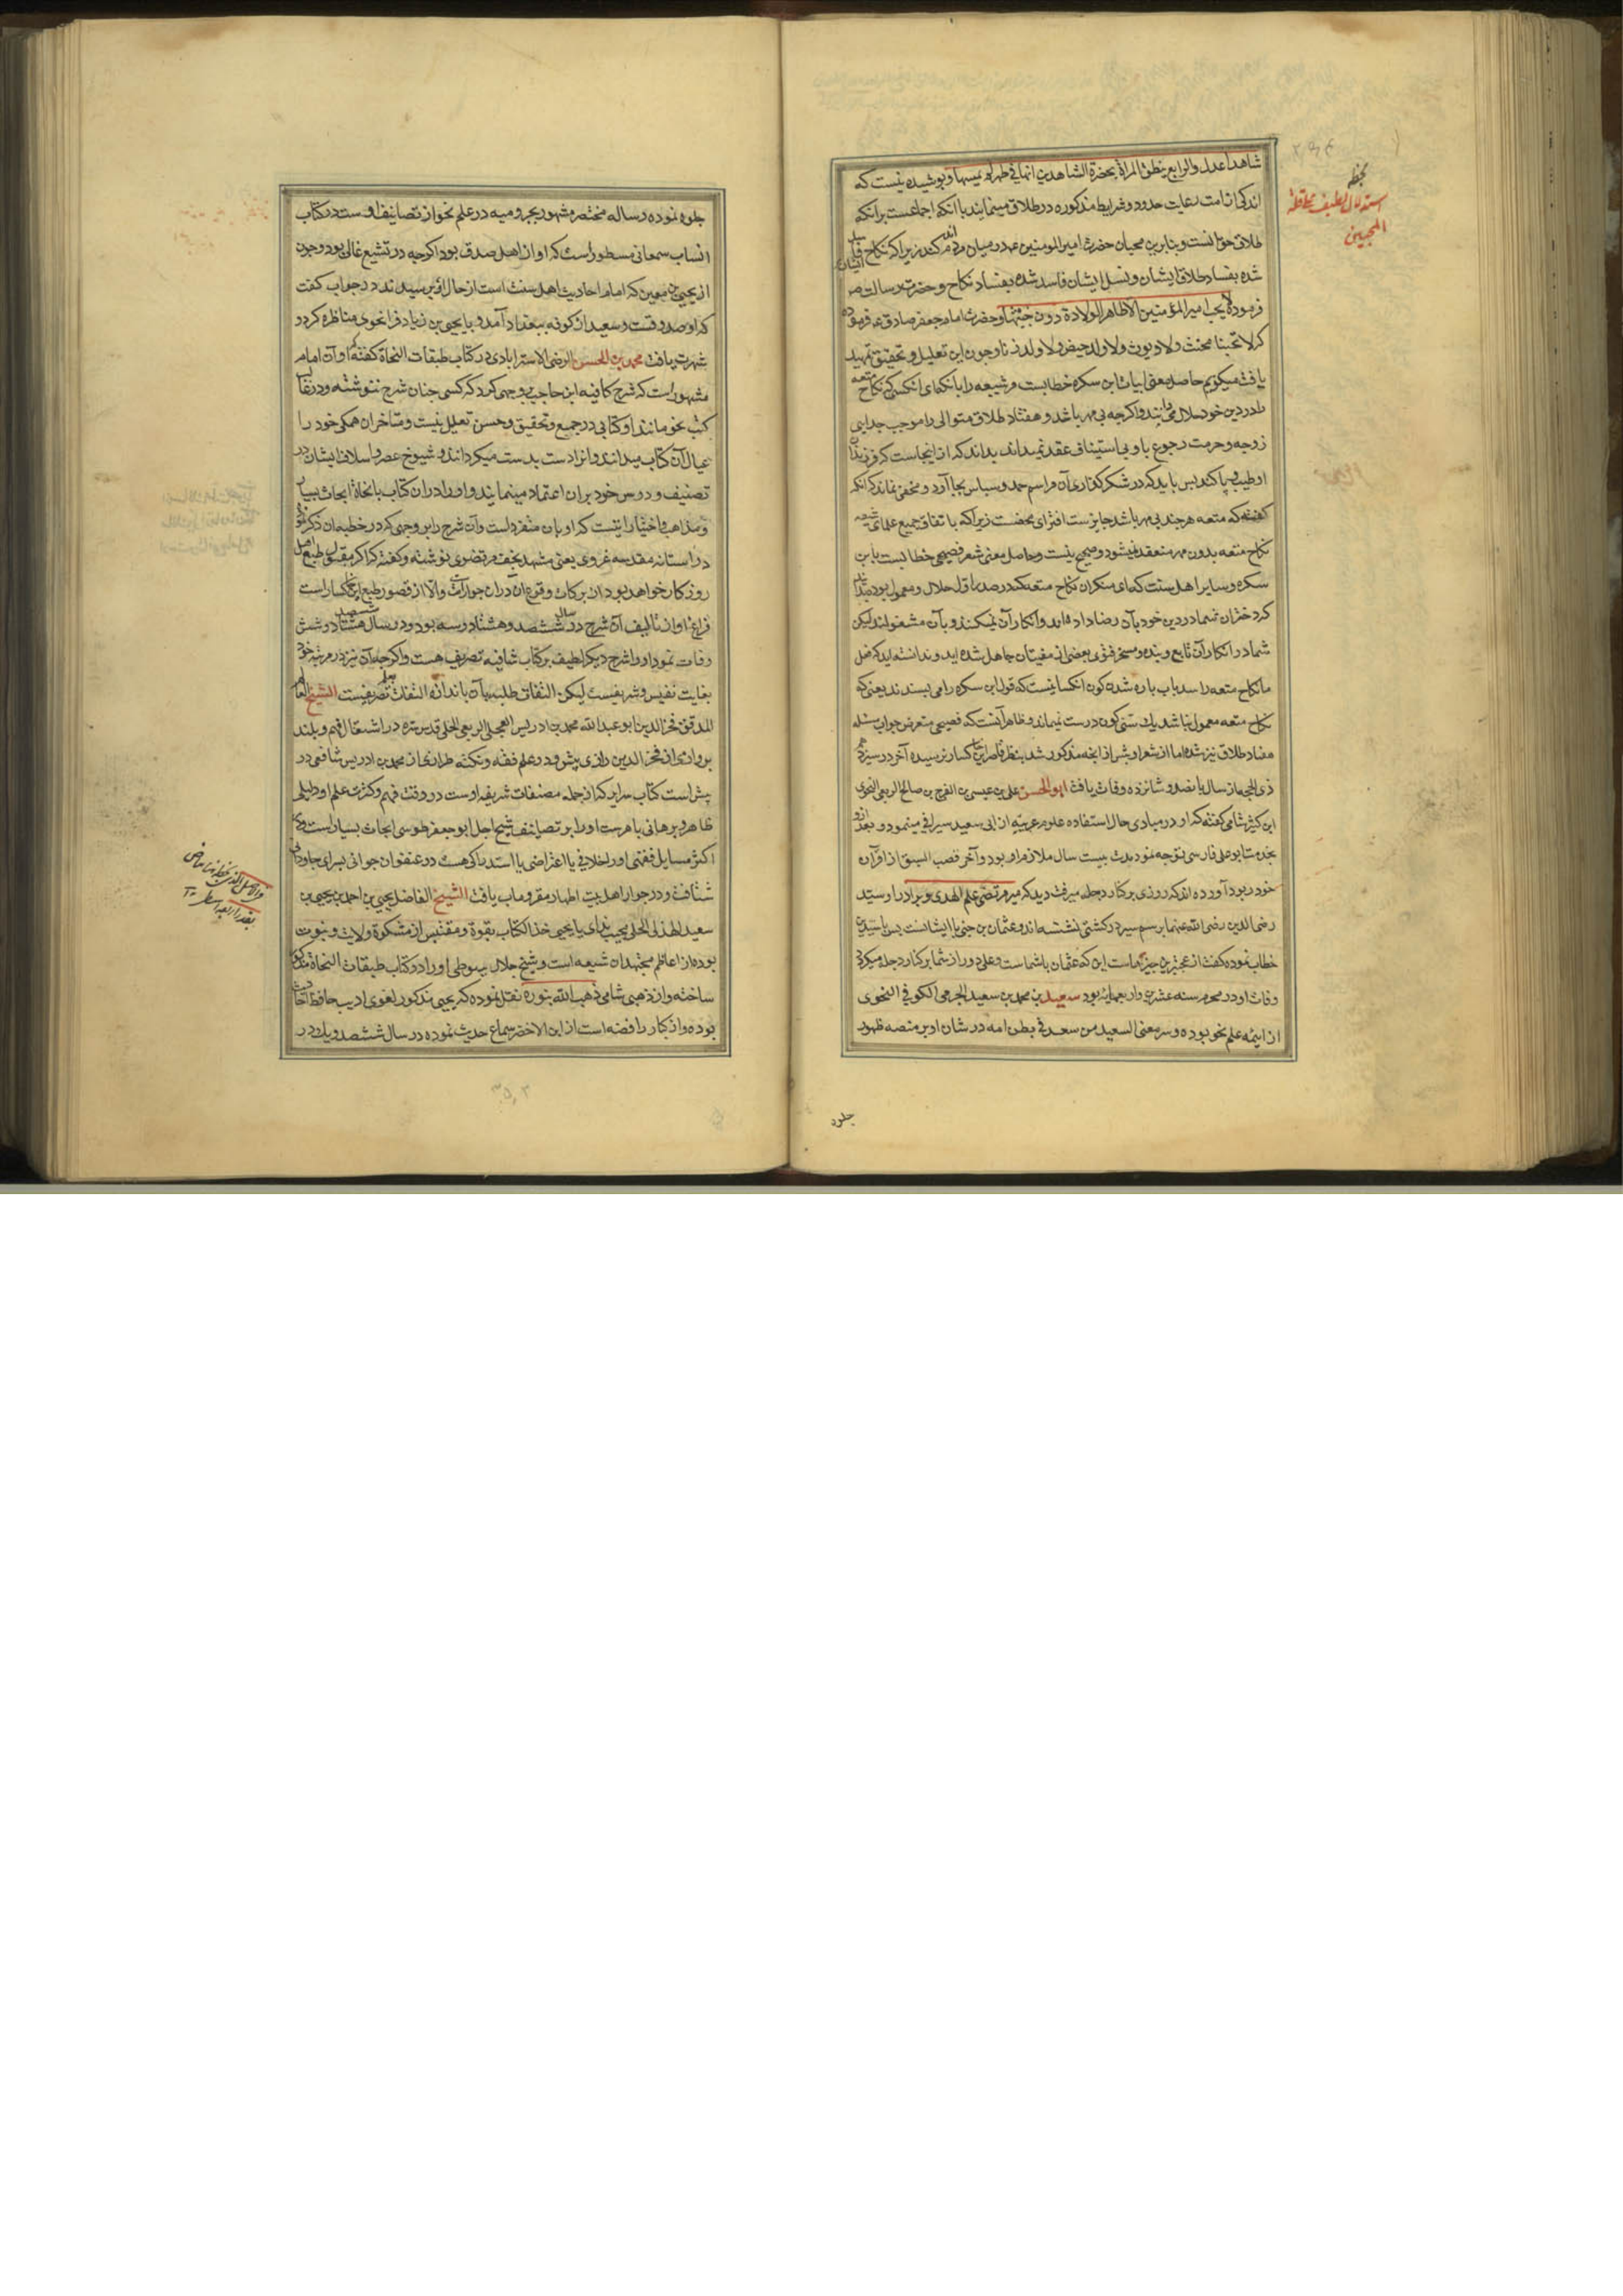 شاهدا عدل والرابع ینطق المراة بحضرة الشاهدین انها فی طهر لم یمسها و پوشیده نیست که
اندکی از امت رعایت حدود و شرایط مذکوره در طلاق مینمایند با آنکه اجماعست برآنکه
طلاق حق آنست و بنابرین محبان حضرت امیر المومنین عهد در میان مردم کمند زیرا که نکاح
شده بفساد طلاق ایشان و نسل ایشان فاسد شده بفساد نکاح و حضرت رسالت ص
فرموده لا یحب امیر المؤمنین الا ظاهر الولادة دون خبیثها و حضرت امام جعفر صادق ع فرموده
که لا تحبنا مخنث ولا دیوث ولا ولد حیض ولا ولد زنا و چون این تعلیل و تحقیق تمهید
یافت میکویم حاصل معنی ابیات ابن سکره خطابست مر شیعه را بانکه ای انکسی که نکاح متعه
را در دین خود حلال می دانند و اکرچه بی مهر باشد و هفتاد طلاق متوالی را موجب جدایی
زوجه و حرمت رجوع باو بی استیناف عقد نمیداند بداند که از اینجاست که فرزندان
او طیب و پاکند پس باید که در شکر گذاری آن مراسم حمد و سپاس بجا آورد و مخفی نماند که آنکه
کفته که متعه هرچند بی مهر باشد جایزست افترای محضست زیرا که باتفاق جمیع علمای شیعه
نکاح متعه بدون مهر منعقد نمیشود و صحیح نیست و حاصل معنی شعر فصیحی خطابست بابن
سکره و سایر اهل سنت که ای منکران نکاح متعه که در صدر اول حلال و معمول بوده
کرد دختران شما در دین خود بآن رضا داده اند و انکار آن نمیکنند و بآن مشغولند لیکن
شما در انکار آن تابع و بنده و مسخر فتوی بعضی از مفتیان جاهل شده اید و ندانسته اید که
مانکاح متعه را سد باب باره شدن کون انکسانیست که قول ابن سکره را می پسندند یعنی که
نکاح متعه معمول نباشد یك سنی کون درست نمیماند و ظاهر آنست که فصیحی متعرض جواب مسئله
هفتاد طلاق نیز شده اما از شعر او بیش از آنچه مذکور شد بنظر قاصر این خاکسار نرسیده آخر در سیزدهم
ذی الحجه از سال پانصد و شانزده وفات یافت ابو الحسن علی بن عیسی بن الفرج بن صالح الربعی النحوی
ابن کثیر شامی کفته که او در مبادی حال استفاده علوم عربیه از ابی سعید سیرافی مینمود و بعد ازو
بخدمت ابو علی فارسی توجه نمود مدت بیست سال ملازم او بود و آخر قصب السبق از اقران
خود ربود آورده اند که روزی بر کنار دجله میرفت دید که میر مرتضی علم الهدی و برادر او سید
رضی الدین رضی الله عنهما برسم سیر در کشتی نشسته اند و عثمان بن جنی با ایشانست پس با سیدین
خطاب نموده کفت از عجیب ترین چیزهاست این که عثمان با شماست و علی دور از شما بر کنار دجله میکردد
وفات او در محرم سنه عشرین و اربعمایه بود سعید بن محمد بن سعید الجرمی الکوفی النحوی
از ایمه علم نحو بوده و سر معنی السعید من سعد فی بطن امه در شان او بر منصه ظهور
جلوه
بخطه
استدلال لطیف
المجیبین
جلوه نموده رساله مختصر مشهور بجرومیه در علم نحو از تصانیف اوست در کتاب
انساب سمعانی مسطور است که او از اهل صدق بود اکرچه در تشیع غالی بود و چون
از یحیی بن معین که امام احادیث اهل سنت است از حال او پرسیدند در جواب کفت
که او صدوقست و سعید از کوفه ببغداد آمد و با یحیی بن زیاد فرا نحوی مناظره کرد و
شهرت یافت محمد بن الحسن الرضی الاسترابادی در کتاب طبقات النحاة کفته که او آن امام
مشهور است که شرح کافیه ابن حاجب بوجهی کرد که کسی چنان شرح ننوشته و در غالب
کتب نحو مانند او کتابی در جمیع و تحقیق و حسن تعلیل نیست و متاخران همکی خود را
عیال آن کتاب میدانند و انرا دست بدست میکردانند و شیوخ عصر و اسلاف ایشان در
تصنیف و درس خود بران اعتماد مینمایند و او را در ان کتاب با نحاة ابحاث بسیار
و مذاهب و اختیاراتیست که او بآن منفرد است و آن شرح را بروجهی که در خطبه آن ذکر نموده
در آستانه مقدسه غروی یعنی مشهد نجف مرتضوی نوشته و کفته که اکر مقبول طبع اهل
روزکار خواهد بود از برکات وقوع آن دران جوار است والا از قصور طبع این خاکسار است
فراغ او از تالیف آن شرح در سال ششصد و هشتاد و سه بود و در سال ششصد هشتاد و شش
وفات نمود او را شرح دیکر لطیف بر کتاب شافیه تصریف هست و اکرچه آن نیز در مرتبه خود
بغایت نفیس و شریفست لیکن التفات طلبه بآن باندازه التفات بعلم تصریفیست الشیخ العالم
المدقق فخر الدین ابو عبد الله محمد بن ادریس العجلی الربعی الحلی قدس سره در اشتعال فهم و بلند
پروازی از فخر الدین رازی پیش و در علم فقه و نکته طرازی از محمد بن ادریس شافعی در
پیش است کتاب سرایر که از جمله مصنفات شریفه اوست در دقت فهم و کثرت علم او دلیلی
ظاهر و برهانی باهر ست او را بر تصانیف شیخ اجل ابو جعفر طوسی ابحاث بسیار است و در
اکثر مسایل فقهی او را خلافی یا اعتراضی یا استدراکی هست در عنفوان جوانی بسرای جاودانی
شتافت و در جوار اهل بیت اطهار مقر و ماب یافت الشیخ الفاضل یحیی بن احمد بن یحیی بن
سعید الهذلی الحلی مجیب ندای یا یحیی خذ الکتاب بقوة و مقتبس از مشکوة ولایت و نبوت
بوده از اعاظم مجتهدان شیعه است و شیخ جلال سیوطی او را در کتاب طبقات النحاة مذکور
ساخته و از ذهبی شامی ذهب الله بنوره نقل نموده که یحیی مذکور لغوی ادیب حافظ احادیث
بوده و از کبار رافضه است از ابن الاخضر سماع حدیث نموده در سال ششصد و یك در